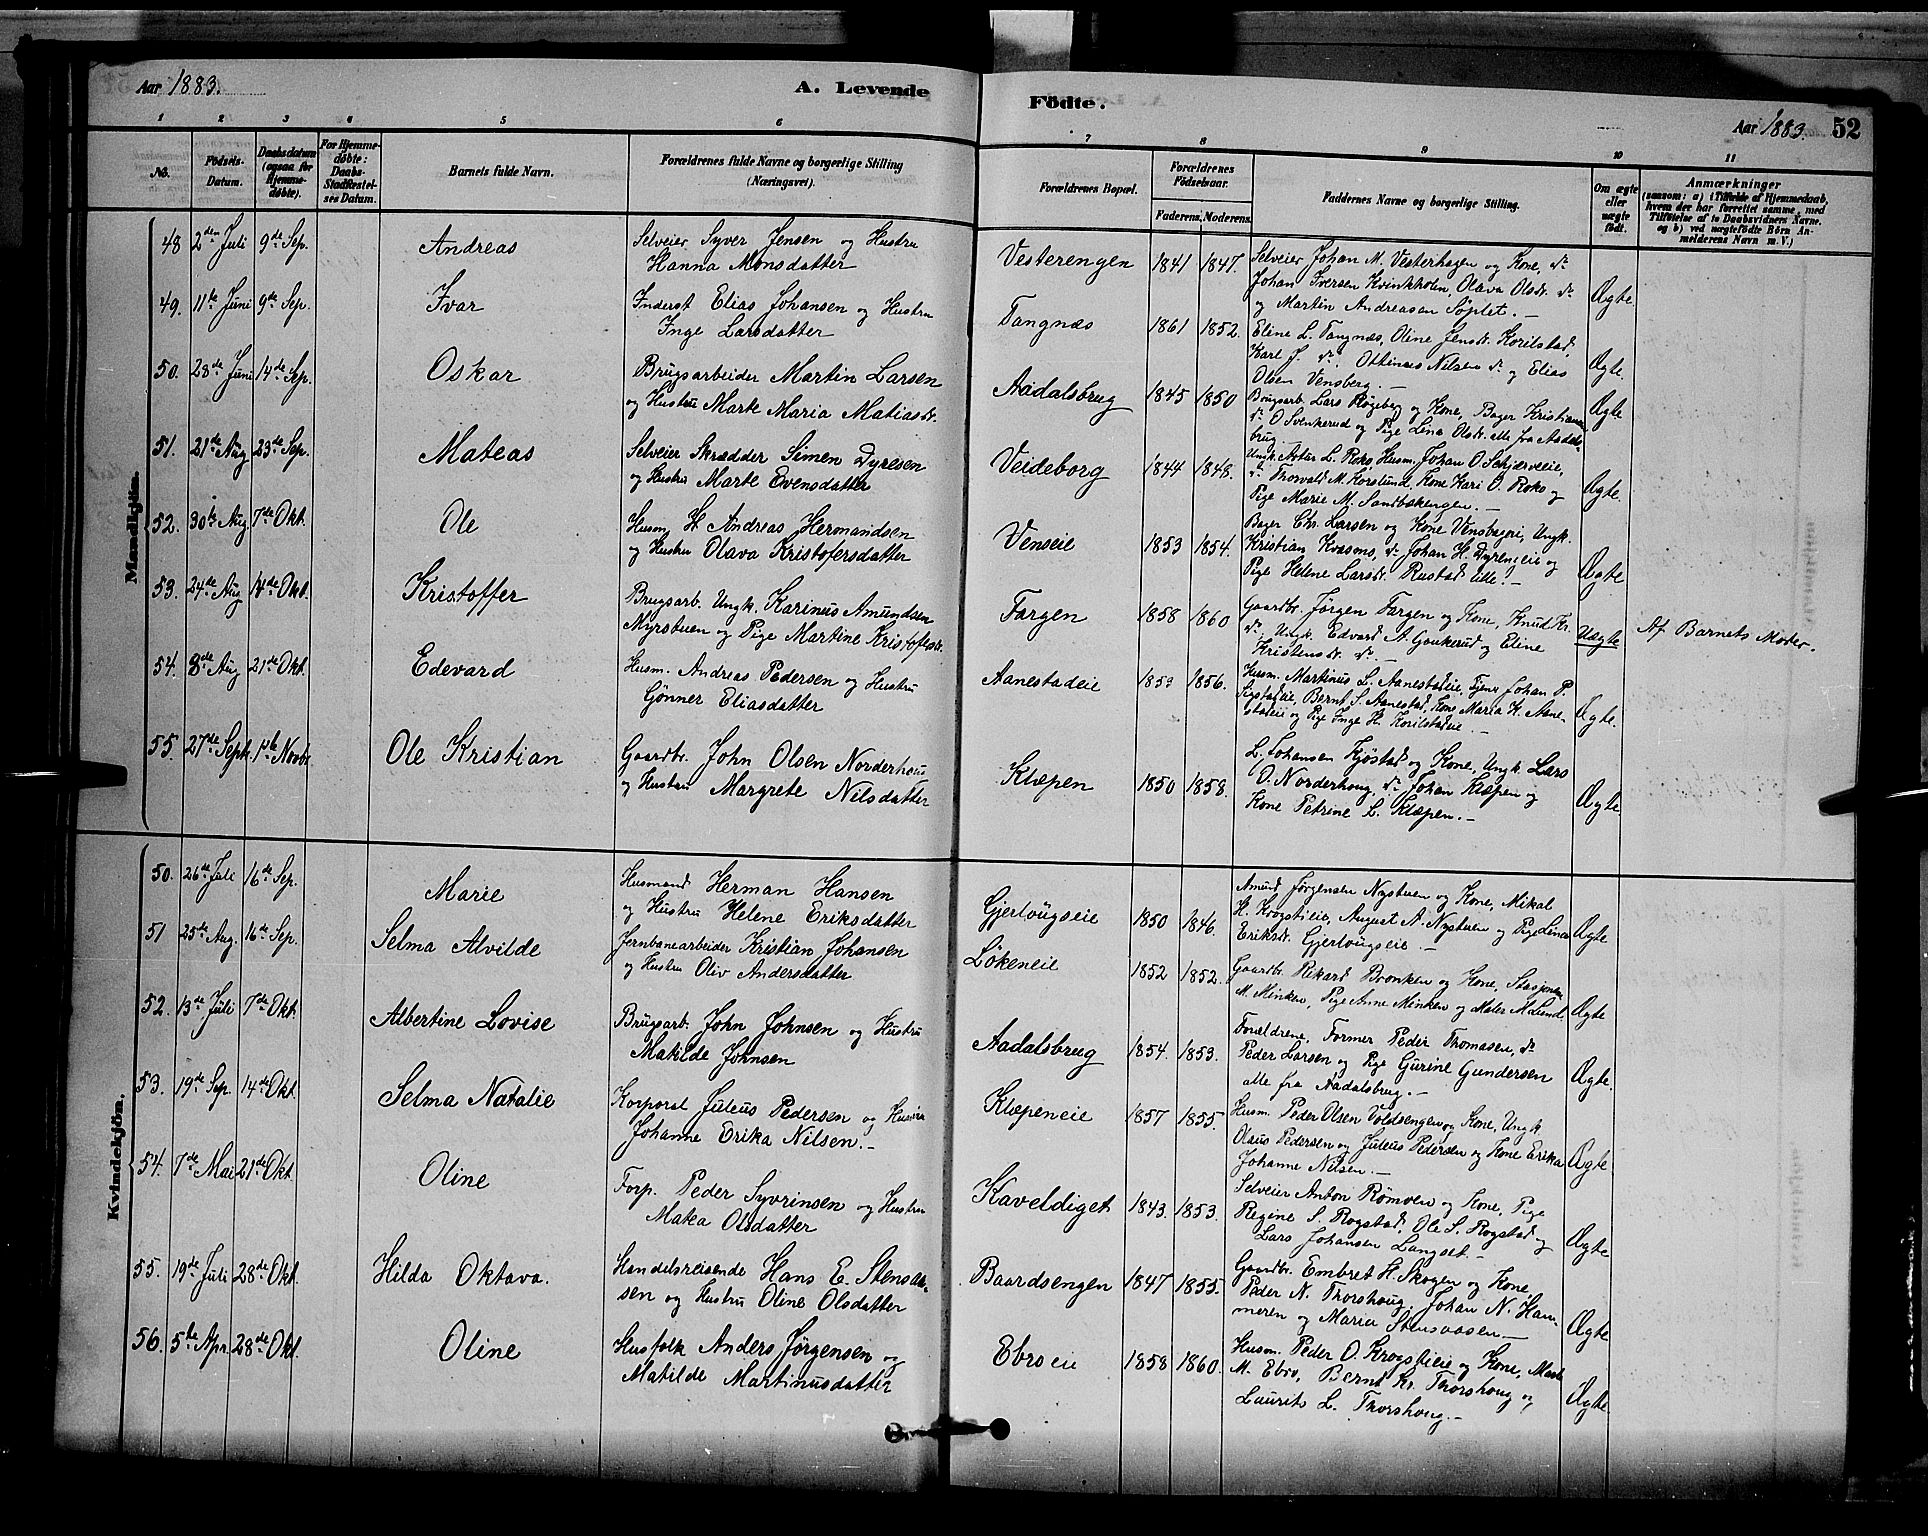 Aar 1883.
A. Levende
Födte.
Aar 1883.
52
1 2 3 4 5 6
7 8 9 10 11
No.
Födsels-Datum.
Daabsdatum (ogsaa for Hjemmedøbte).
For Hjemmedøbte: Daabs-Stadfæstelses Datum.
Barnets fulde Navn.
Forældrenes fulde Navne og borgerlige Stilling (Næringsvei).
Forældrenes Bopæl.
Forældrenes Födselsaar.
Faderens. Moderens.
Faddernes Navne og borgerlige Stilling.
Om ægte eller uægte födt.
Anmærkninger
(saasom: a) i Tilfælde af Hjemmedaab, hvem der har forrettet samme, med Tilföielse af to Daabsvidners Navne. og b) ved uægtefödte Börn Anmelderens Navn m. V.)
Mandkjön.
48 2den Juli 9de Sep. Andreas
Selveier Syver Jensen og Hustru
Hanna Monsdatter
Vesterengen 1841 1847.
Selveier Johan M. Vesterhagen og Kone, do
Johan Iversen Kvinkholen, Olava Olsdr. do
og Martin Andreasen Söplet. -
Ægte.
49. 11te Juni 9de Sep. Ivar
Inderst Elias Johansen og Hustru
Inge Larsdatter
Tangnæs 1861 1852.
Eline L. Tangnæs, Oline Jensdr. Korilstad,
Karl J. do, Ottinius Nilsen do og Elias
Olsen Vensberg. -
Ægte.
50. 28de Juni 14de Sep. Oskar
Brugsarbeider Martin Larsen
og Hustru Marte Maria Matiasdr.
Aadalsbrug 1845 1850
Brugsarb. Lars Rögeberg og Kone, Bager Kristiansen
do O. Svenkerud og Pige Lina Olsdr. alle fra Aadals-
brug. -
Ægte
51. 21de Aug 23de Sep. Mateas
Selveier Skrædder Simen Dyresen
og Hustru Marte Evensdatter
Veideborg 1844 1848.
Ungk. Artur L. Roko Husm. Johan O. Schjærveeie,
do Thorvald M. Korslund, Kone Kari O. Roko og
Pige Marie M. Sandbakengen. -
Ægte.
52. 30te Aug. 7de Okt. Ole
Husm. St. Andreas Hermandsen
og Hustru Olava Kristofersdatter
Venseie 1853 1854.
Bager Chr. Larsen og Kone Vensbageri, Ungk.
Kristian Kvæsons, do Johan H. Dyreneie og
Pige Helene Larsdr. Rustad lille. -
Ægte
53. 24de Aug 14de Okt. Kristoffer
Brugsarb. Ungk. Karinus Amundsen
Myrstuen og Pige Martine Kristofersdr.
Fargen 1858 1860
Gaardbr. Jörgen Fargen og Kone, Knud Kr.
do, Ungk. Edvard A. Gaukerud og Eline
Kristensdr. do. -
Uægte
Af Barnets Moder.
54. 8de Aug 21de Okt. Edevard
Husm. Andreas Pedersen og Hustru
Gjønner Eliasdatter
Aanestadeie 1859 1856.
Husm. Martinus L. Aanestadeie, Tjener Johan P.
Sigstadeie, Bernt S. Aanestad, Kone Maria K. Aane-
stadeie og Pige Inge H. Korilstadeie. -
Ægte.
55. 27de Septr. 1ste Novbr. Ole Kristian
Gaardbr. John Olsen Norderhoug
og Hustru Margrete Nilsdatter
Klæpen 1850 1858.
L. Johansen Kjöstad og Kone, Ungk. Lars
O. Norderhoug, do Johan Klæpen og
Kone Petrine L. Klæpen. -
Ægte
Kvindekjön.
50. 26de Juli 16de Sep. Marie
Husmand Herman Hansen
og Hustru Helene Eriksdatter
Gjerlougseie 1850 1846.
Amund Jörgensen Nystuen og Kone, Mikal
H. Krogstieie, August A. Nystuen og Pige Lina
Eriksdr. Gjerlougseie. -
Ægte
51 25de Aug. 16de Sep. Selma Alvilde
Jernbanearbeider Kristian Johansen
og Hustru Oliv Andersdatter
Lökeneie 1852 1852.
Gaardbr. Rikard Bronken og Kone, Stasjonsm.
M. Minken, Pige Anne Minken og Maler M. Lund.
Ægte
52. 13de Juli 7de Okt. Albertine Lovise
Brugsarb. John Johnsen og Hustru
Matilde Johnsen
Aadalsbrug 1854. 1853.
Forældrene, Former Peder Thomasen, do
Peder Larsen og Pige Gurine Gundersen
alle fra Aadalsbrug. -
Ægte.
53. 19de Sep. 14de Okt. Selma Natalie
Korporal Juleus Pedersen og Hustru
Johanne Erika Nilsen. -
Klæpeneie 1857 1855.
Husm. Peder Olsen Voldsengen og Kone, Ungk
Olaus Pedersen og Juleus Pedersen og Kone Erika
Johanne Nilsen. -
Ægte.
54. 7de Mai 21de Okt. Oline
Forp. Peder Syvrinsen og Hustru
Matea Olsdatter
Kaveldiget 1843. 1853.
Selveier Anton Römoen og Kone, Pige
Regine S. Rogstad, Ole S. Rogstad og
Lars Johansen Langset. -
Ægte
55. 19de Juli 28de Okt. Hilda Oktava.
Handelsreisende Hans E. Stensaa-
sen og Hustru Oline Olsdatter
Baardsengen 1847 1855.
Gaardbr. Embret H. Skogen og Kone,
Peder N. Thorshoug, Johan N. Ham-
meren og Maria Stensaasen. -
Ægte
56. 5te Apr. 28de Okt. Oline
Husfolk Anders Jørgensen og
Matilde Martinusdatter
Ebroeie 1858 1860.
Husm. Peder O. Krogstieie og Kone, Marte
M. Ebro, Bernt Kr. Thorshoug og
Laurits L. Thorshoug. -
Ægte.